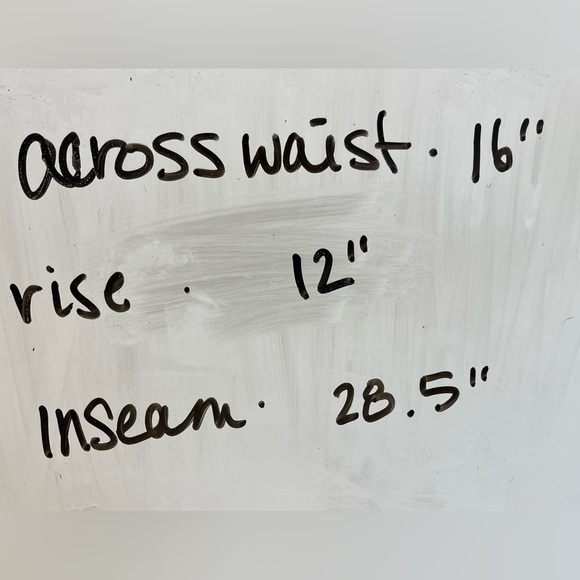 across waist. 16"
rise . 12"
Inseam. 28.5"